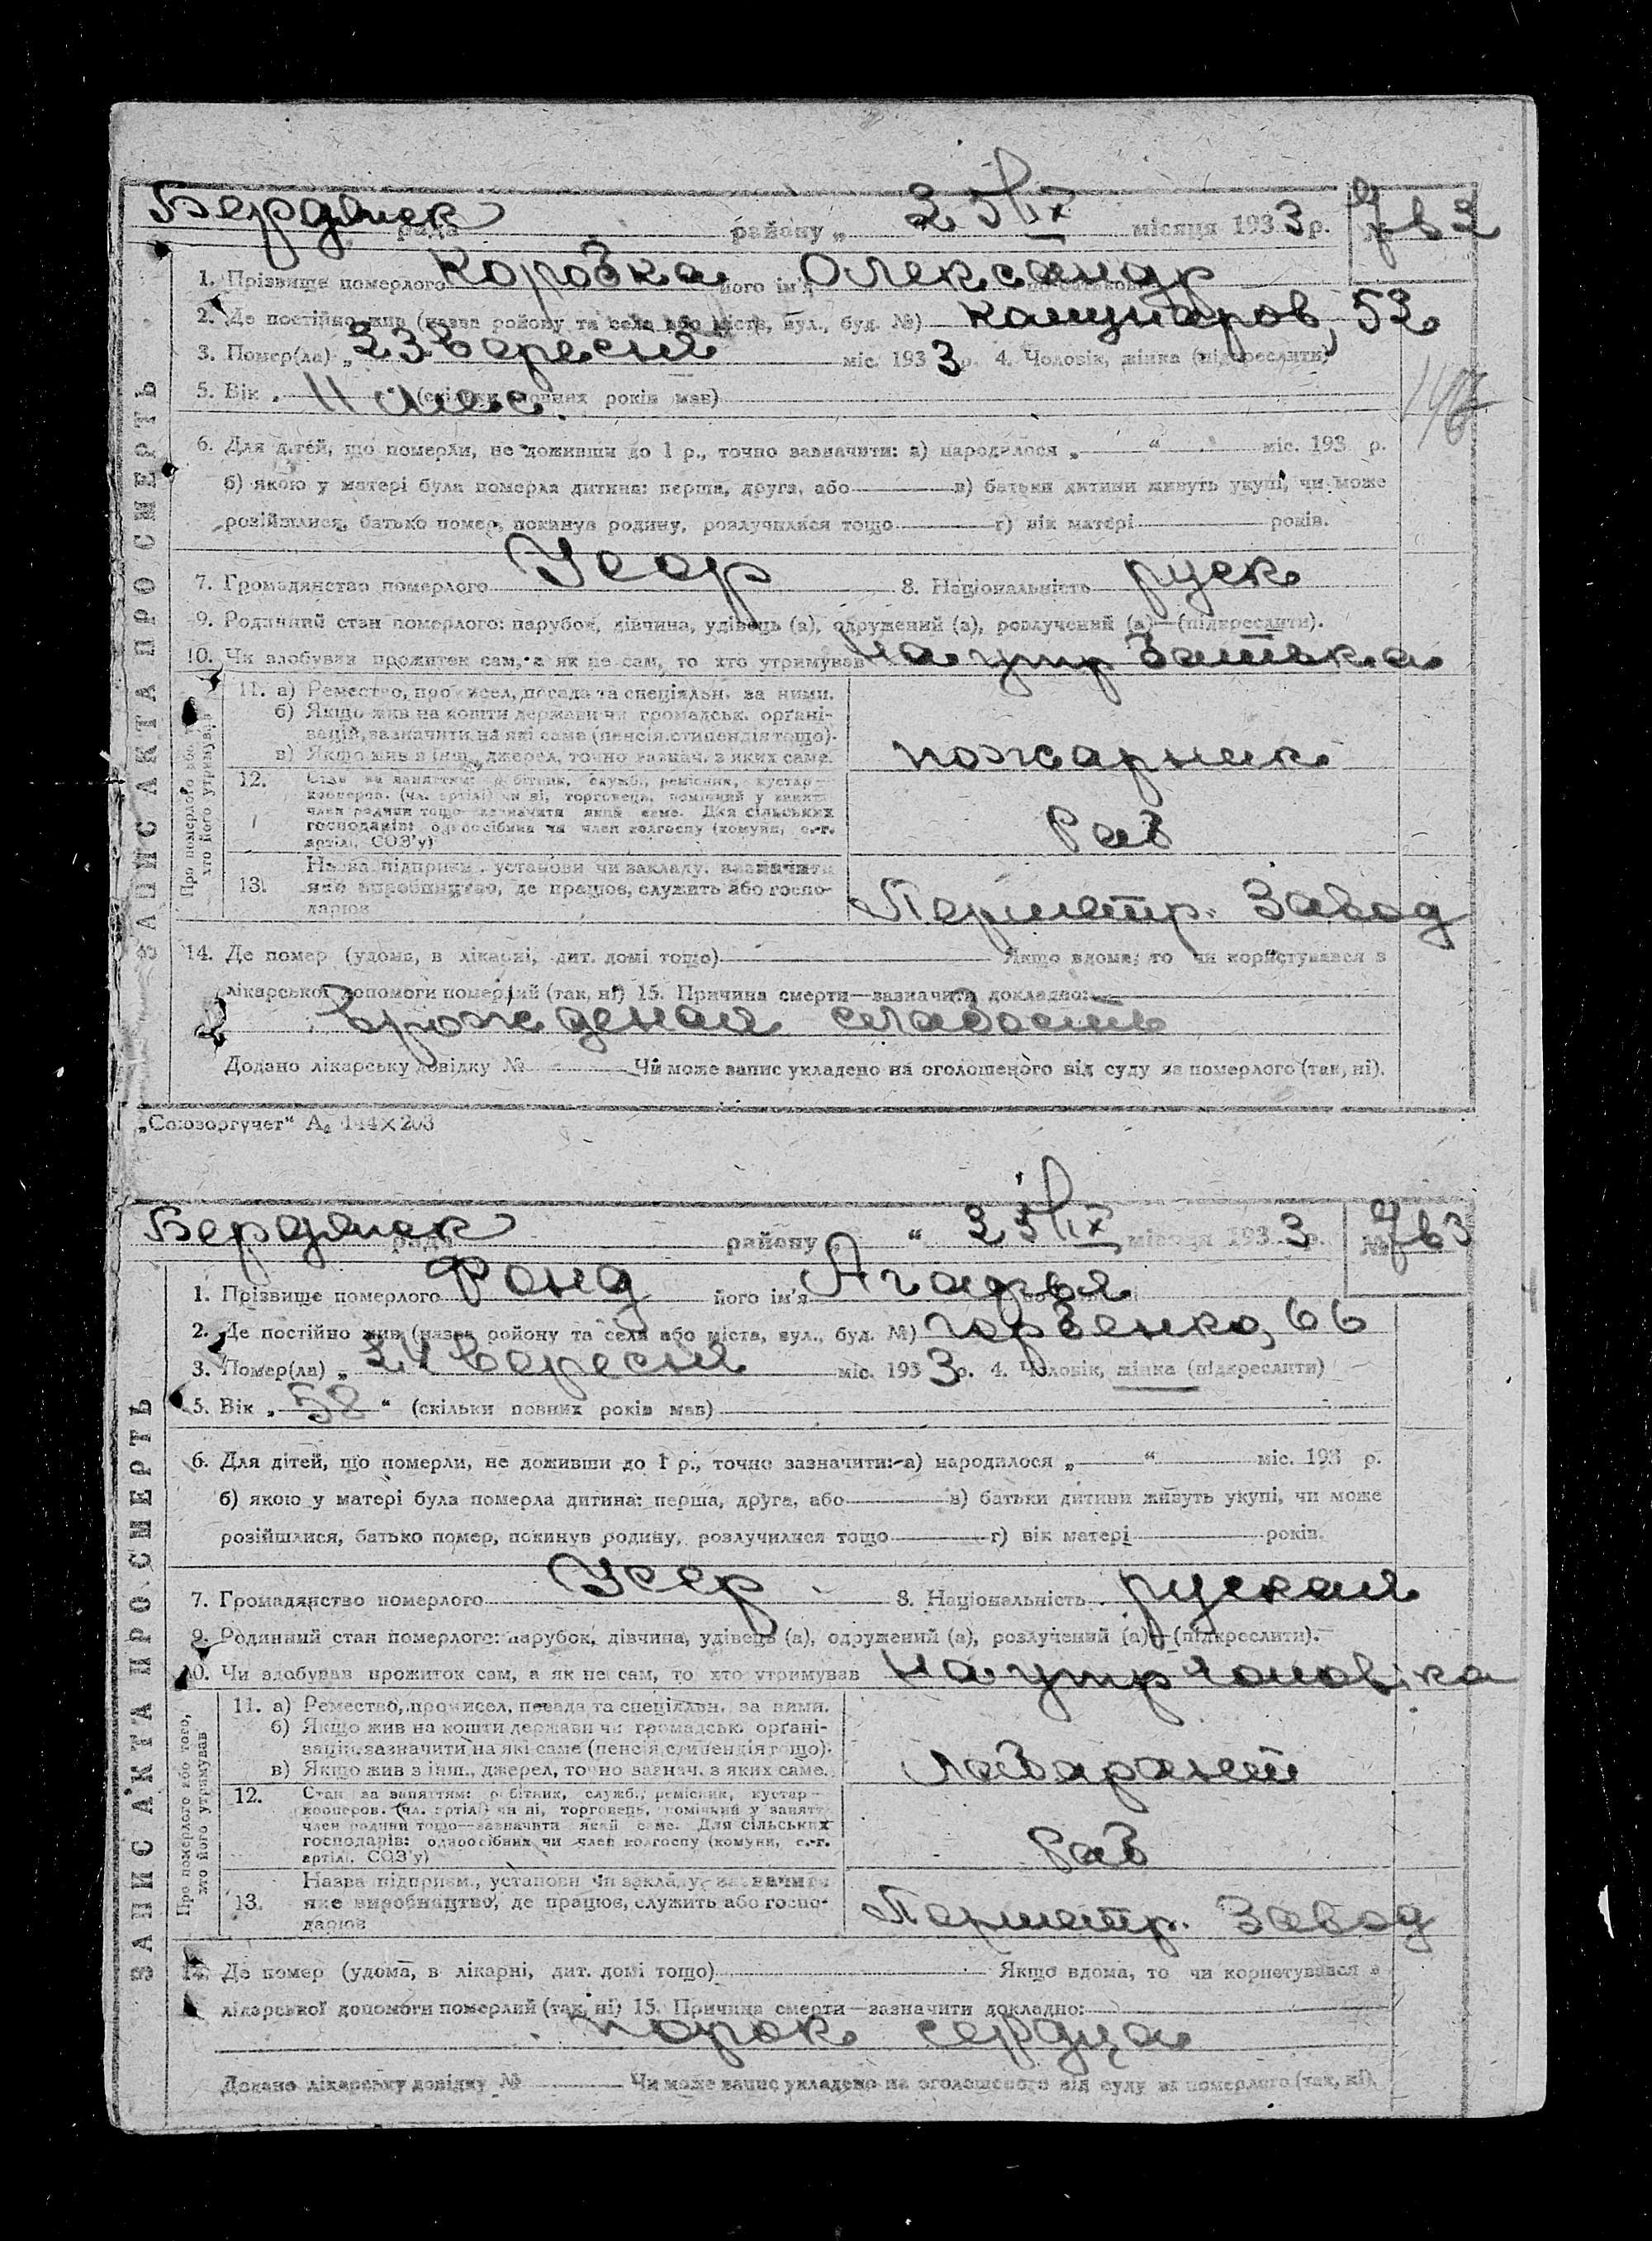 Бердянск рада району „ 25/IX місяця 1933 р. № 762
1. Прізвище померлого Коробка його ім'я Олександр
2. Де постійно жив (назва району та села або міста, вул., буд. №) 52
3. Помер(ла) „ 23 вересня міс. 1933 р. 4. Чоловік, жінка (підкреслити)
5. Вік „ 11 мес. (скільки повних років мав)
6. Для дітей, що померли, не доживши до 1 р., точно зазначити: а) народилося „ “ міс. 193 р.
б) якою у матері була померла дитина: перша, друга, або в) батьки дитини живуть укупі, чи може
розійшлися, батько помер, покинув родину, розлучилися тощо г) вік матері років.
7. Громадянство померлого Усср 8. Національність руск
9. Родинний стан померлого: парубок, дівчина, удівець (а), одружений (а), розлучений (а)—(підкреслити).
10. Чи здобував прожиток сам, а як не сам, то хто утримував на утр батька
ЗАПИС АКТА ПРО СМЕРТЬ
Про померлого або того, хто його утримував
11. а) Ремество, промисел, посада та спеціяльн. за ними.
б) Якщо жив на кошти держави чи громадськ. органі-
зацій, зазначити, на які саме (пенсія, стипендія тощо).
в) Якщо жив з інш., джерел, точно зазнач. з яких саме.
пожарник
12. Стан за заняттям: робітник, служб., ремісник, кустар—
кооперов. (чл. артілі) чи ні, торговець, помічний у занятт.
член родини тощо—зазначити який саме. Для сільських
господарів: одноосібник чи член колгоспу (комуни, с.-г.
артілі, СОЗ'у)
Раб
13. Назва підприєм., установи чи закладу, зазначити
яке виробництво, де працює, служить або госпо-
дарює
Перметр. Завод
14. Де помер (удома, в лікарні, дит. домі тощо) Якщо вдома, то чи користувався з
лікарської допомоги померлий (так, ні) 15. Причина смерти—зазначити докладно:
врожденая слабость
Додано лікарську довідку № Чи може запис укладено на оголошеного від суду за померлого (так, ні).
„Союзоргучет“ А₆ 144×203
Бердянск рада району „ “ 25/IX місяця 1933 р. № 763
1. Прізвище померлого Фонд його ім'я Агафья
2. Де постійно жив (назва району та села або міста, вул., буд. №) Горбенко, 66
3. Помер(ла) „ 24 вересня міс. 1933 р. 4. Чоловік, жінка (підкреслити)
5. Вік „ 58 “ (скільки повних років мав)
6. Для дітей, що померли, не доживши до 1 р., точно зазначити: а) народилося „ “ міс. 193 р.
б) якою у матері була померла дитина: перша, друга, або в) батьки дитини живуть укупі, чи може
розійшлися, батько помер, покинув родину, розлучилися тощо г) вік матері років.
7. Громадянство померлого Усср 8. Національність руская
9. Родинний стан померлого: парубок, дівчина, удівець (а), одружений (а), розлучений (а)—(підкреслити).
10. Чи здобував прожиток сам, а як не сам, то хто утримував на утр чоловіка
ЗАПИС АКТА ПРО СМЕРТЬ
Про померлого або того, хто його утримував
11. а) Ремество, промисел, посада та спеціяльн. за ними.
б) Якщо жив на кошти держави чи громадськ. органі-
зацій, зазначити на які саме (пенсія, стипендія тощо).
в) Якщо жив з інш., джерел, точно зазнач. з яких саме.
лаборант
12. Стан за заняттям: робітник, служб., ремісник, кустар—
кооперов. (чл. артілі) чи ні, торговець, помічний у занятт.
член родини тощо—зазначити який саме. Для сільських
господарів: одноосібник чи член колгоспу (комуни, с.-г.
артілі, СОЗ'у)
Раб
13. Назва підприєм., установи чи закладу, зазначити
яке виробництво, де працює, служить або госпо-
дарює
Перметр. Завод
14. Де помер (удома, в лікарні, дит. домі тощо) Якщо вдома, то чи користувався з
лікарської допомоги померлий (так, ні) 15. Причина смерти—зазначити докладно:
порок сердца
Додано лікарську довідку № Чи може запис укладено на оголошеного від суду за померлого (так, ні).